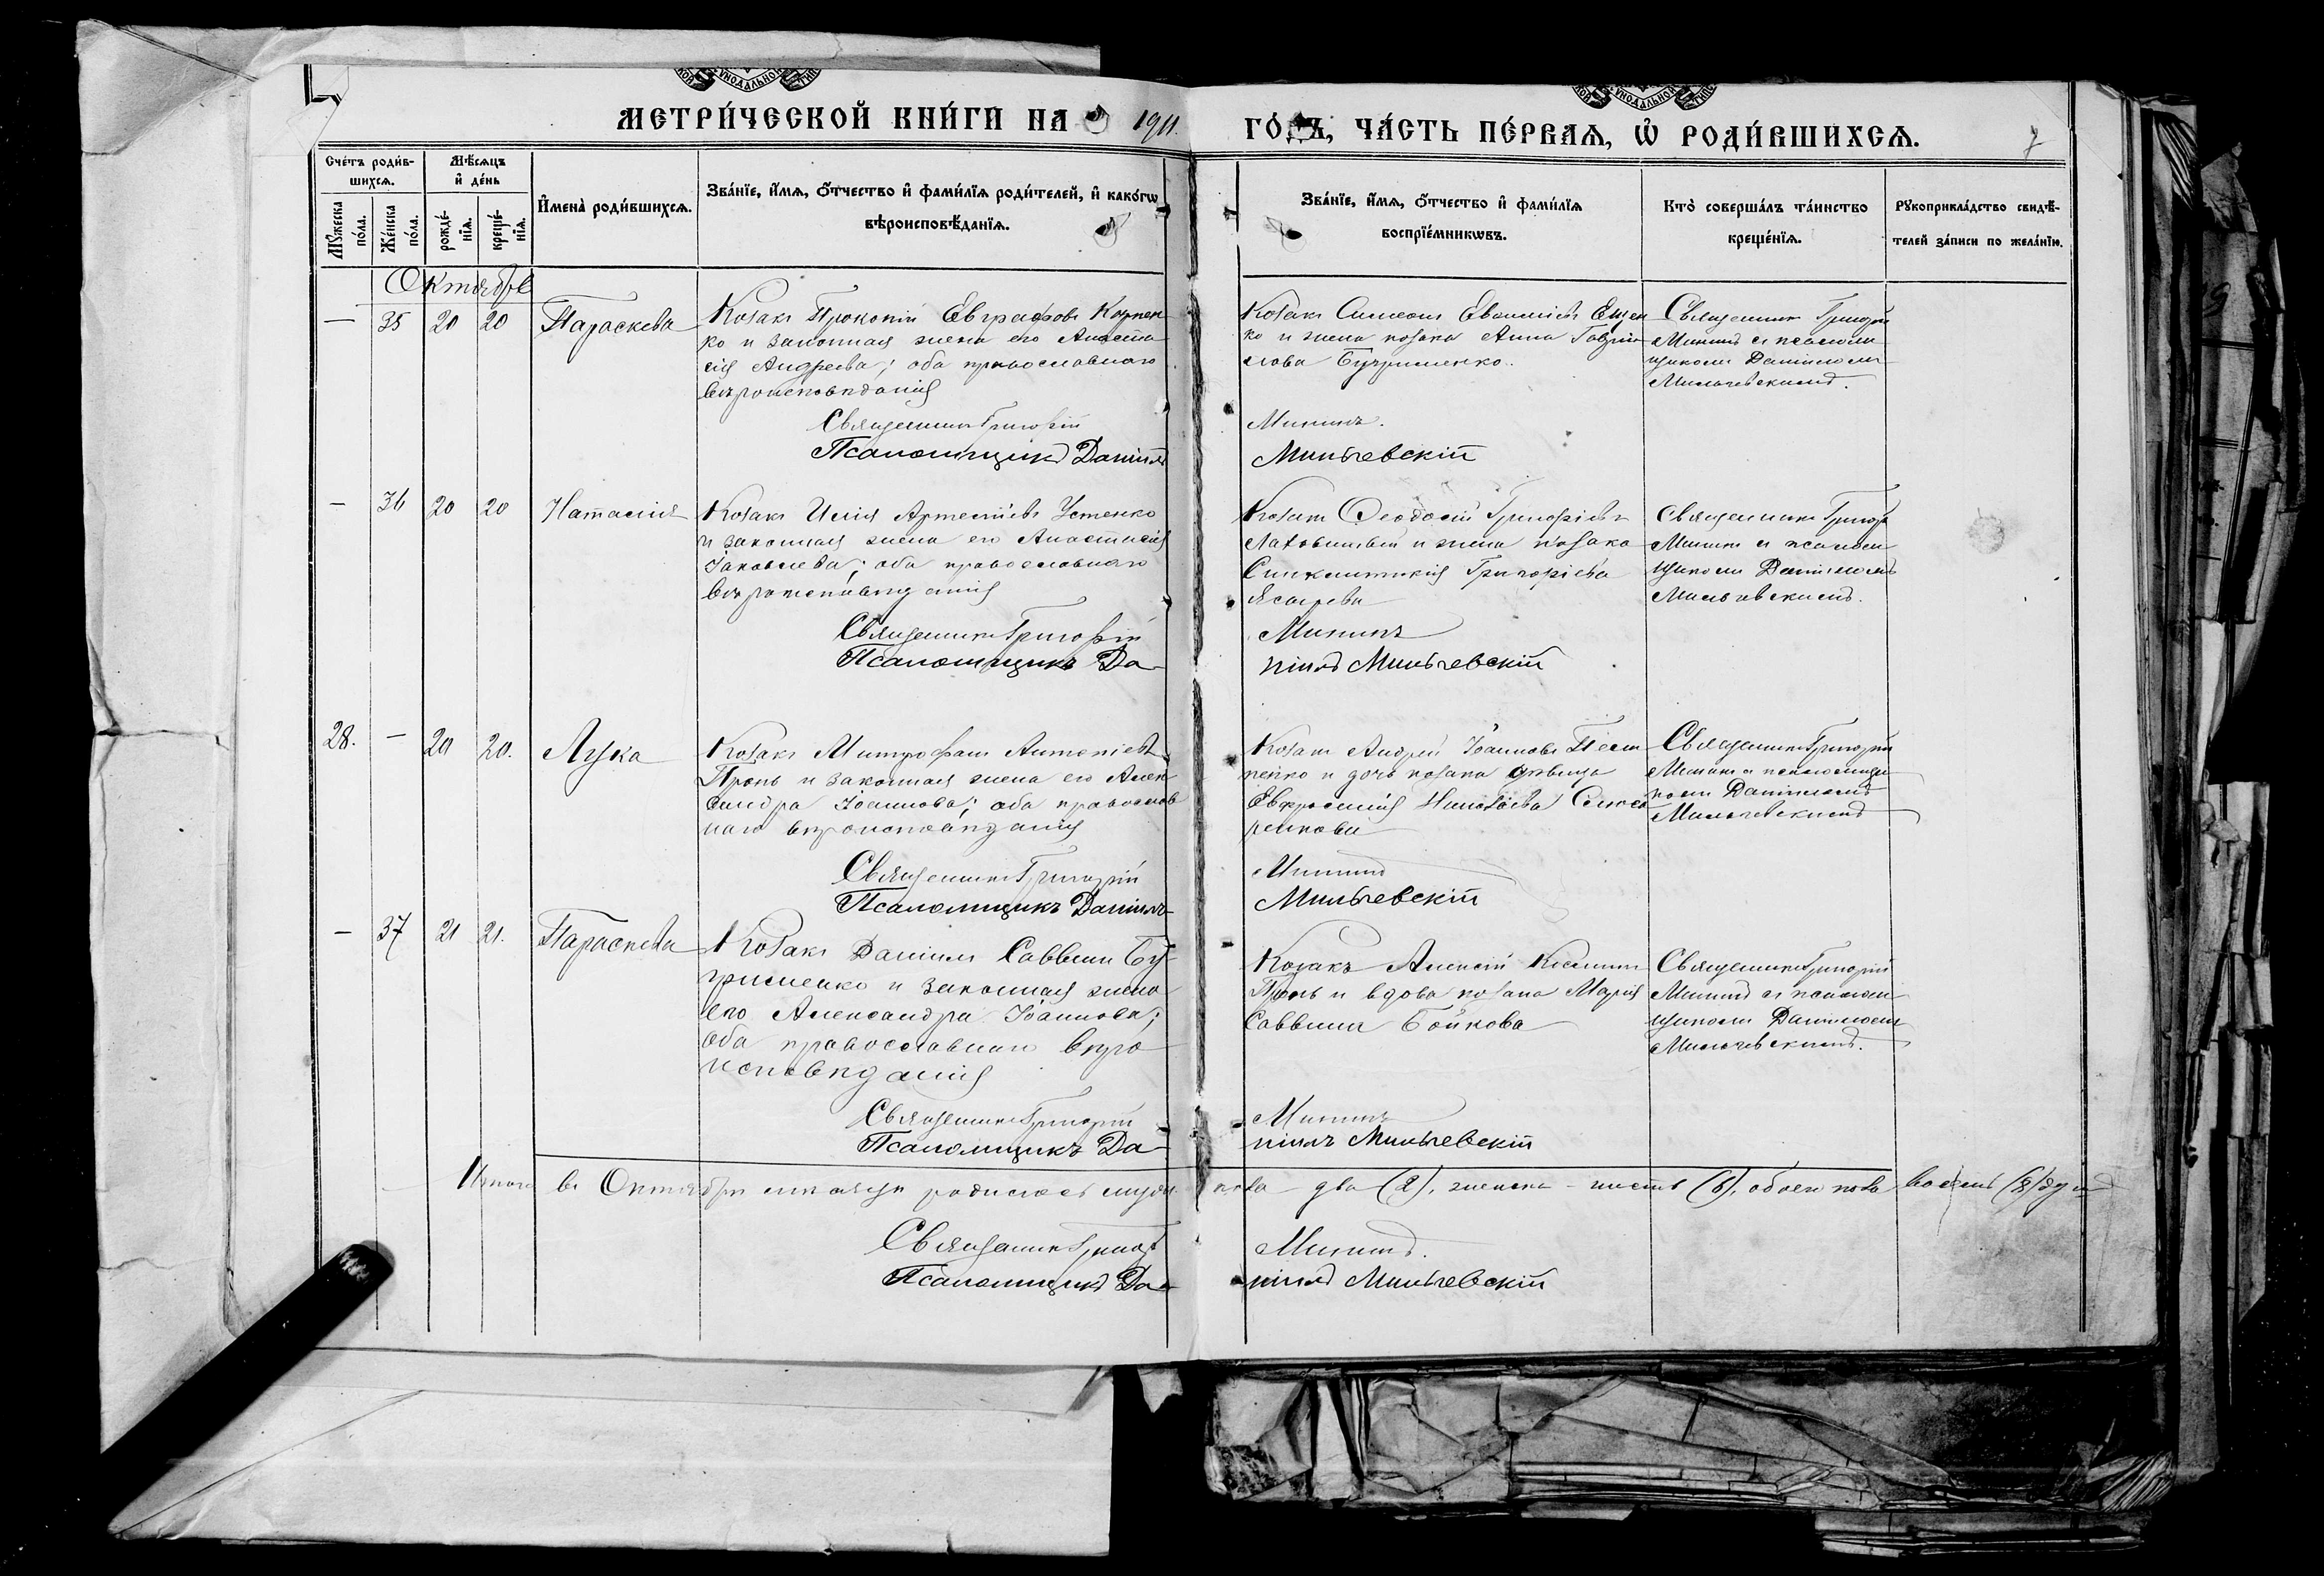 МЕТРИ́ЧЕСКОЙ КНИ́ГИ НА 1911.
ГО́ДЪ, ЧА́СТЬ ПЕ́РВАЯ, Ѡ РОДИ́ВШИХСЯ.
7
Сче́тъ роди́в-
шихся.
Мѣ́сяцъ
и де́нь
Му́жеска
по́ла.
Же́нска
по́ла.
рожде́-
нїя.
креще́-
нїя.
И҆мена̀ роди́вшихся.
Зва́нїе, и҆́мя, ѻ҆́тчество и҆ фами́лїя роди́телей, и҆ како́гѡ
вѣроисповѣ́данїя.
Зва́нїе, и҆́мя, ѻ҆́тчество и҆ фами́лїя
воспрїе́мникѡвъ.
Кто̀ соверша́лъ та́инство
креще́нїя.
Рукоприкла́дство свидѣ́-
телей за́писи по жела́нїю.
Октябрь
— 35 20 20 Параскева
Козакъ Прокопій Евграфовъ Карпен
ко и законная жена его Анаста
сія Андреева; оба православнаго
вѣроисповѣданія
Священникъ Григорій
Псаломщикъ Даніилъ
Козакъ Симеонъ Евѳиміевъ Ещен
ко и жена козака Анна Гаврии
лова Бугрименко.
Мининъ.
Мильчевскій
Священникъ Григорій
Мининъ съ псалом
щикомъ Даніиломъ
Мильчевскимъ.
— 36 20 20 Наталія
Козакъ Илія Артеміевъ Устенко
и законная жена его Анастасія
Іаковлева; оба православнаго
вѣроисповѣданія
Священникъ Григорій
Псаломщикъ Да-
Козакъ Ѳеодосій Григорьевъ
и жена козака
Синклитикія Григорьева
Мининъ
ніилъ Мильчевскій
Священникъ Григорій
Мининъ съ псалом
щикомъ Даніиломъ
Мильчевскимъ.
28. — 20 20. Лука
Козакъ Митрофанъ Антоніевъ
Пронь и законная жена его Алек
сандра Іоаннова; оба православ
наго вѣроисповѣданія
Священникъ Григорій
Псаломщикъ Даніилъ
Козакъ Андрей Іоанновъ
и дочь козака дѣвица
Евфросинія Николаева
Мининъ
Мильчевскій
Священникъ Григорій
Мининъ съ псаломщи
комъ Даніиломъ
Мильчевскимъ
— 37 21 21. Параскева
Козакъ Даніилъ Саввинъ Бу
грименко и законная жена
его Александра Іоаннова;
оба православнаго вѣро
исповѣданія
Священникъ Григорій
Псаломщикъ Да-
Козакъ Алексій Косминъ
Пронь и вдова козака Марія
Саввина Бойкова
Мининъ
ніилъ Мильчевскій
Священникъ Григорій
Мининъ съ псалом
щикомъ Даніиломъ
Мильчевскимъ.
Итого въ Октябрѣ мѣсяцѣ родилось мужеска пола — два (2), женска — шесть (6), обоего пола восемь (8) душъ
Священникъ Григор
Псаломщикъ Да-
Мининъ.
ніилъ Мильчевскій